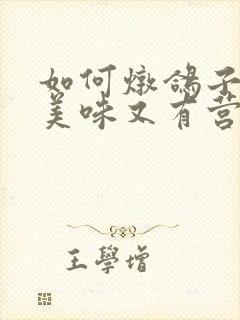 如何燉鴿子
美味又有营
王學增